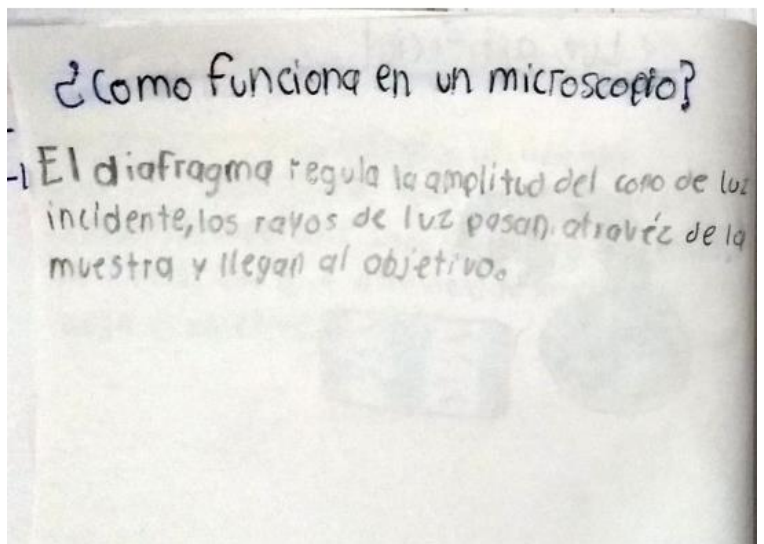 ¿Como funciona en un microscopio?
El diafragma regula la amplitud del cono de luz
incidente, los rayos de luz pasan atravéz de la
muestra y llegan al objetivo.